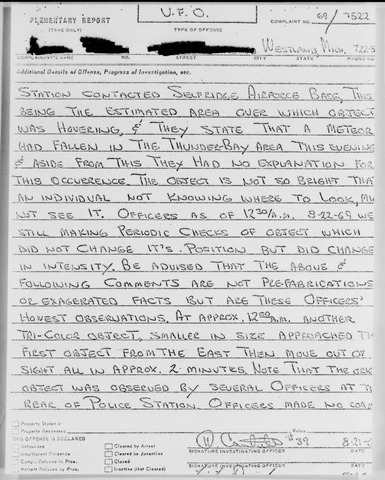 U.F.O.
PLEMENTARY REPORT
(TYPE ONLY)
TYPE OF OFFENSE
COMPLAINT NO. 69/7522
WESTLAND, MICH. 722-5
COMPLAINANT'S NAME
STREET
CITY
STATE
PHONE NO
Additional Details of Offense, Progress of Investigation, etc.
STATION CONTACTED SELFRIDGE AIRFORCE BASE, THIS
BEING THE ESTIMATED AREA OVER WHICH OBJECT
WAS HOVERING, & THEY STATE THAT A METEOR
HAD FALLEN IN THE THUNDER-BAY AREA THIS EVENING
& ASIDE FROM THIS THEY HAD NO EXPLANATION FOR
THIS OCCURENCE. THE OBJECT IS NOT SO BRIGHT THAT
AN INDIVIDUAL NOT KNOWING WHERE TO LOOK, MAY
NOT SEE IT. OFFICERS AS OF 12:30A.M. 8-22-69 WE
STILL MAKING PERIODIC CHECKS OF OBJECT WHICH
DID NOT CHANGE IT'S POSITION BUT DID CHANGE
IN INTENSITY. BE ADVISED THAT THE ABOVE &
FOLLOWING COMMENTS ARE NOT PRE-FABRICATIONS
OR EXAGERATED FACTS BUT ARE THESE OFFICERS'
HONEST OBSERVATIONS. AT APPROX. 12:00A.M. ANOTHER
TRI-COLOR OBJECT, SMALLER IN SIZE APPROACHED TH
FIRST OBJECT FROM THE EAST THEN MOVE OUT OF
SIGHT ALL IN APPROX. 2 MINUTES. NOTE THAT THE
OBJECT WAS OBSERVED BY SEVERAL OFFICERS AT T
REAR OF POLICE STATION. OFFICERS MADE NO
Property Stolen
Property Recovered
THIS OFFENSE IS DECLARED
Unfounded
Cleared by Arrest
Insufficient Evidence
Cleared by Juvenile
Complt. Refuses to Pros.
Closed
Victim Refuses to Pros.
Inactive (Not Cleared)
#39
8-21-6
SIGNATURE INVESTIGATING OFFICER
DATE
SIGNATURE INVESTIGATING OFFICER